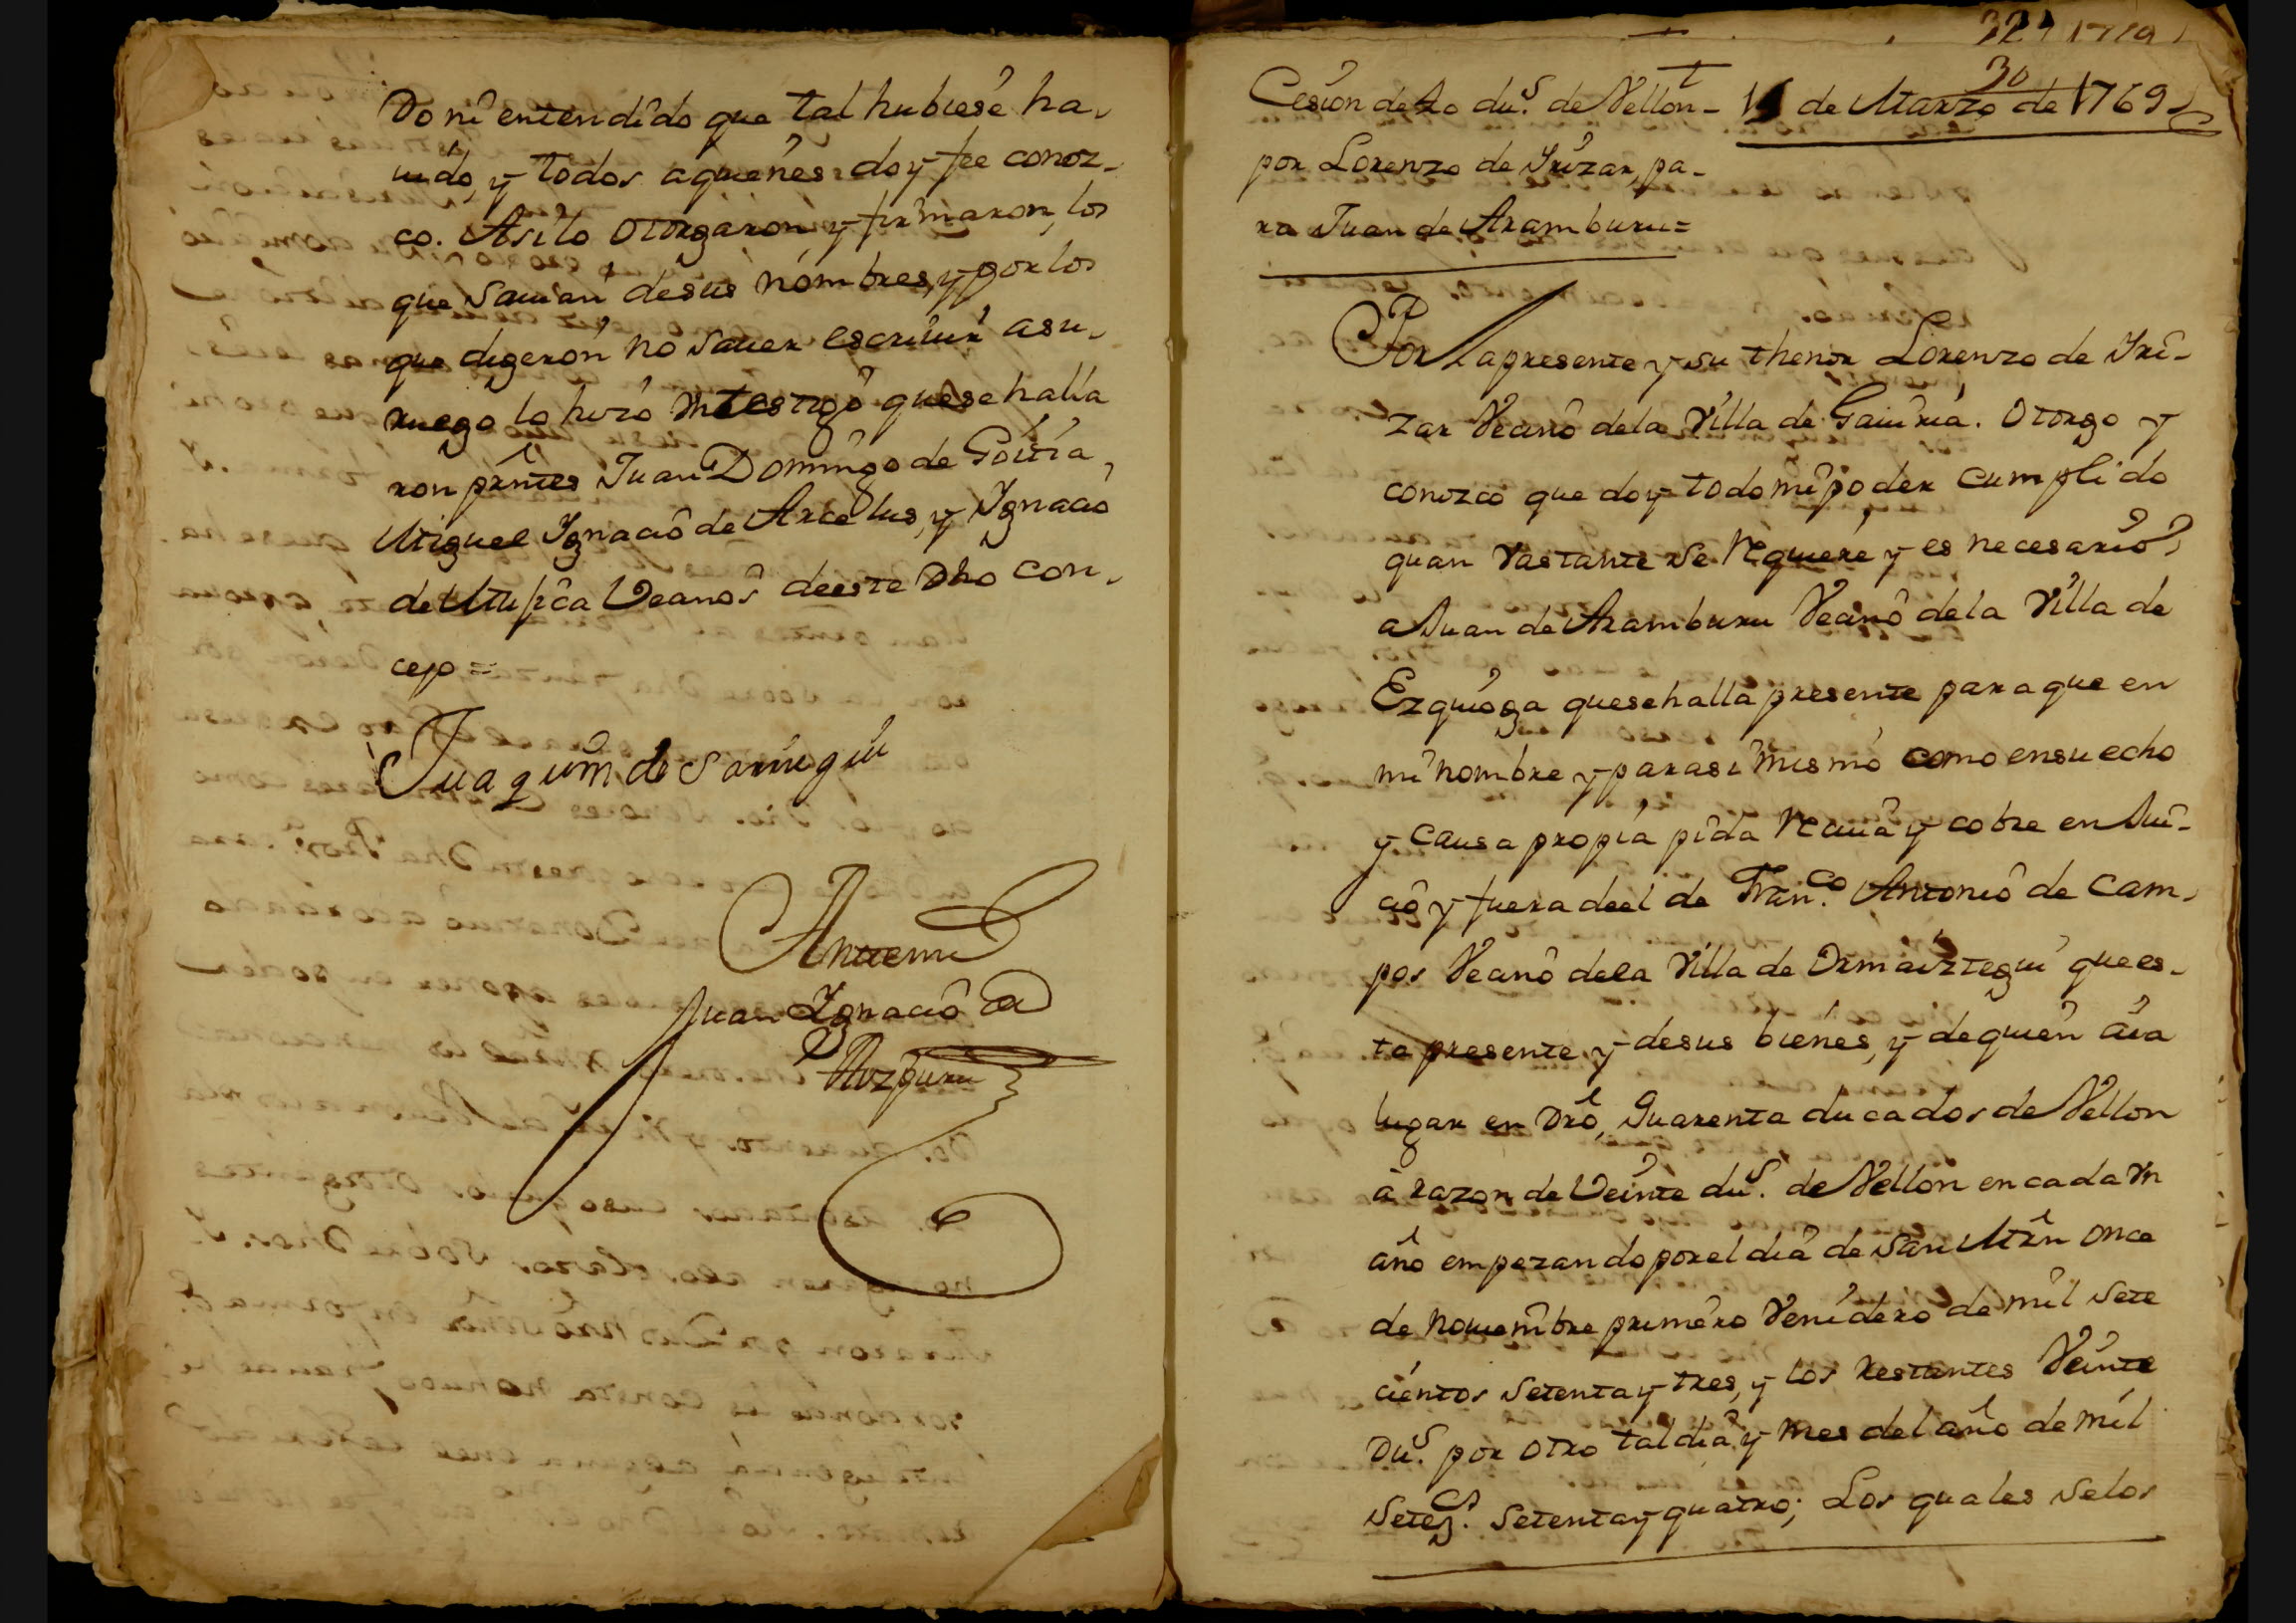 do ni entendido que tal hubiese ha-
uido, y todos aquienes doy fee conoz-
co. Asilo otorgaron, y firmaron, los
que sauian desus nombres, y por los
que digeron no sauer escriuir asu-
ruego lo hizo un testigo que se halla
ron prntes Juan Domingo de Goitia,
Miguel Ygnacio de Arcelus, y Ygnacio
de Mugica Vecinos deeste dho con-
cejo =
Juaquin de Sariegui
Antemi
Juan Ygnacio de
Aozpuru
324 1719
Cesion de 40 dus. de Vellon -
por Lorenzo de Yrizar, pa-
ra Juan de Aramburu =
30
de Marzo de 1769
Por la presente y su thenor Lorenzo de Yri-
zar Vecino dela Villa de Gauiria. Otorgo y
conozco que doy todo mi poder cumplido
quan vastante se requiere y es necesario,
a Juan de Aramburu Vecino dela Villa de
Ezquioga quesehalla presente paraque en
mi nombre y parasi mismo como ensu echo
y causa propia pida reciua y cobre en Jui-
cio y fuera deel de Fran.co Antonio de Cam-
pos Vecino dela Villa de Ormaiztegui quees-
ta presente y desus bienes, y dequien aia
lugar en dro, quarenta ducados de Vellon
a razon de Veinte dus. de Vellon en cada un
año empezando por el dia de san Mrn once
de nouiembre primero Venidero de mil sete
cientos setenta y tres, y los restantes Veinte
dus. por otro tal dia y mes del año de mil
seteCs. setenta y quatro; Los quales selos